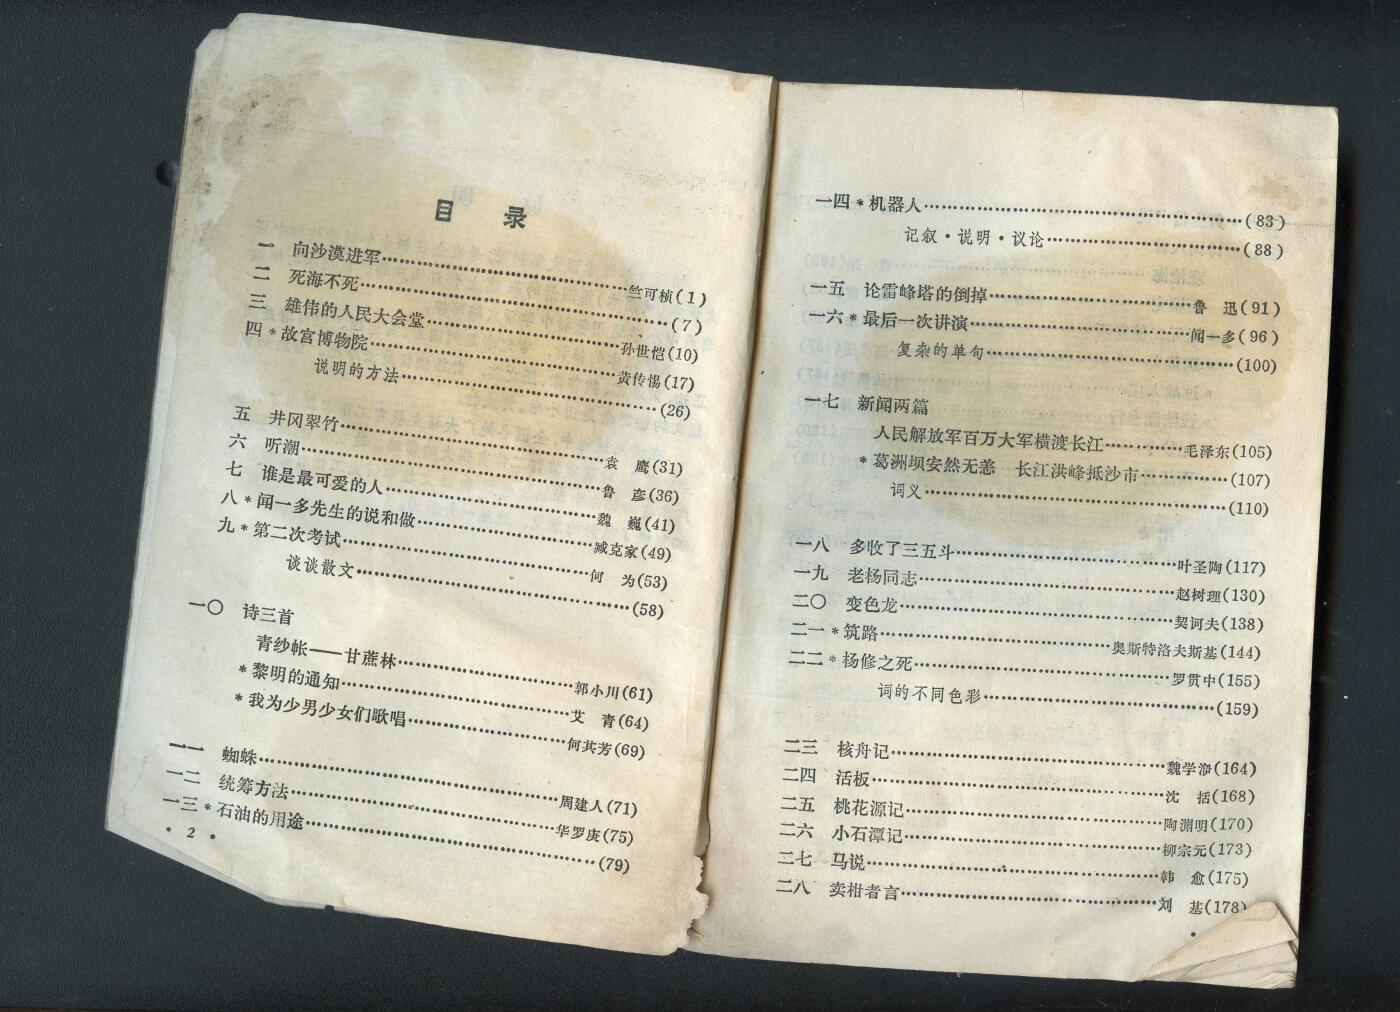 目 录
一 向沙漠进军……竺可桢(1)
二 死海不死……(7)
三 雄伟的人民大会堂……孙世恺(10)
四*故宫博物院……黄传惕(17)
说明的方法……(26)
五 井冈翠竹……袁 鹰(31)
六 听潮……鲁 彦(36)
七 谁是最可爱的人……魏 巍(41)
八*闻一多先生的说和做……臧克家(49)
九*第二次考试……何 为(53)
谈谈散文……(58)
一〇 诗三首
青纱帐——甘蔗林……郭小川(61)
*黎明的通知……艾 青(64)
*我为少男少女们歌唱……何其芳(69)
一一 蜘蛛……周建人(71)
一二 统筹方法……华罗庚(75)
一三*石油的用途……(79)
·2·
一四*机器人……(83)
记叙·说明·议论……(88)
一五 论雷峰塔的倒掉……鲁 迅(91)
一六*最后一次讲演……闻一多(96)
复杂的单句……(100)
一七 新闻两篇
人民解放军百万大军横渡长江……毛泽东(105)
*葛洲坝安然无恙 长江洪峰抵沙市……(107)
词义……(110)
一八 多收了三五斗……叶圣陶(117)
一九 老杨同志……赵树理(130)
二〇 变色龙……契诃夫(138)
二一*筑路……奥斯特洛夫斯基(144)
二二*杨修之死……罗贯中(155)
词的不同色彩……(159)
二三 核舟记……魏学洢(164)
二四 活板……沈 括(168)
二五 桃花源记……陶渊明(170)
二六 小石潭记……柳宗元(173)
二七 马说……韩 愈(175)
二八 卖柑者言……刘 基(178)